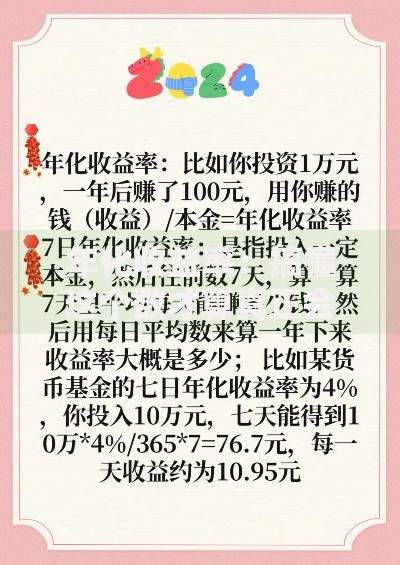 2024
年化收益率：比如你投资1万元
，一年后赚了100元，用你赚的
钱（收益）/本金=年化收益率
7日年化收益率：是指投入一定
本金，然后往前数7天，算一算
7天 然
后用每日平均数来算一年下来
收益率大概是多少； 比如某货
币基金的七日年化收益率为4%
，你投入10万元，七天能得到1
0万*4%/365*7=76.7元，每一
天收益约为10.95元